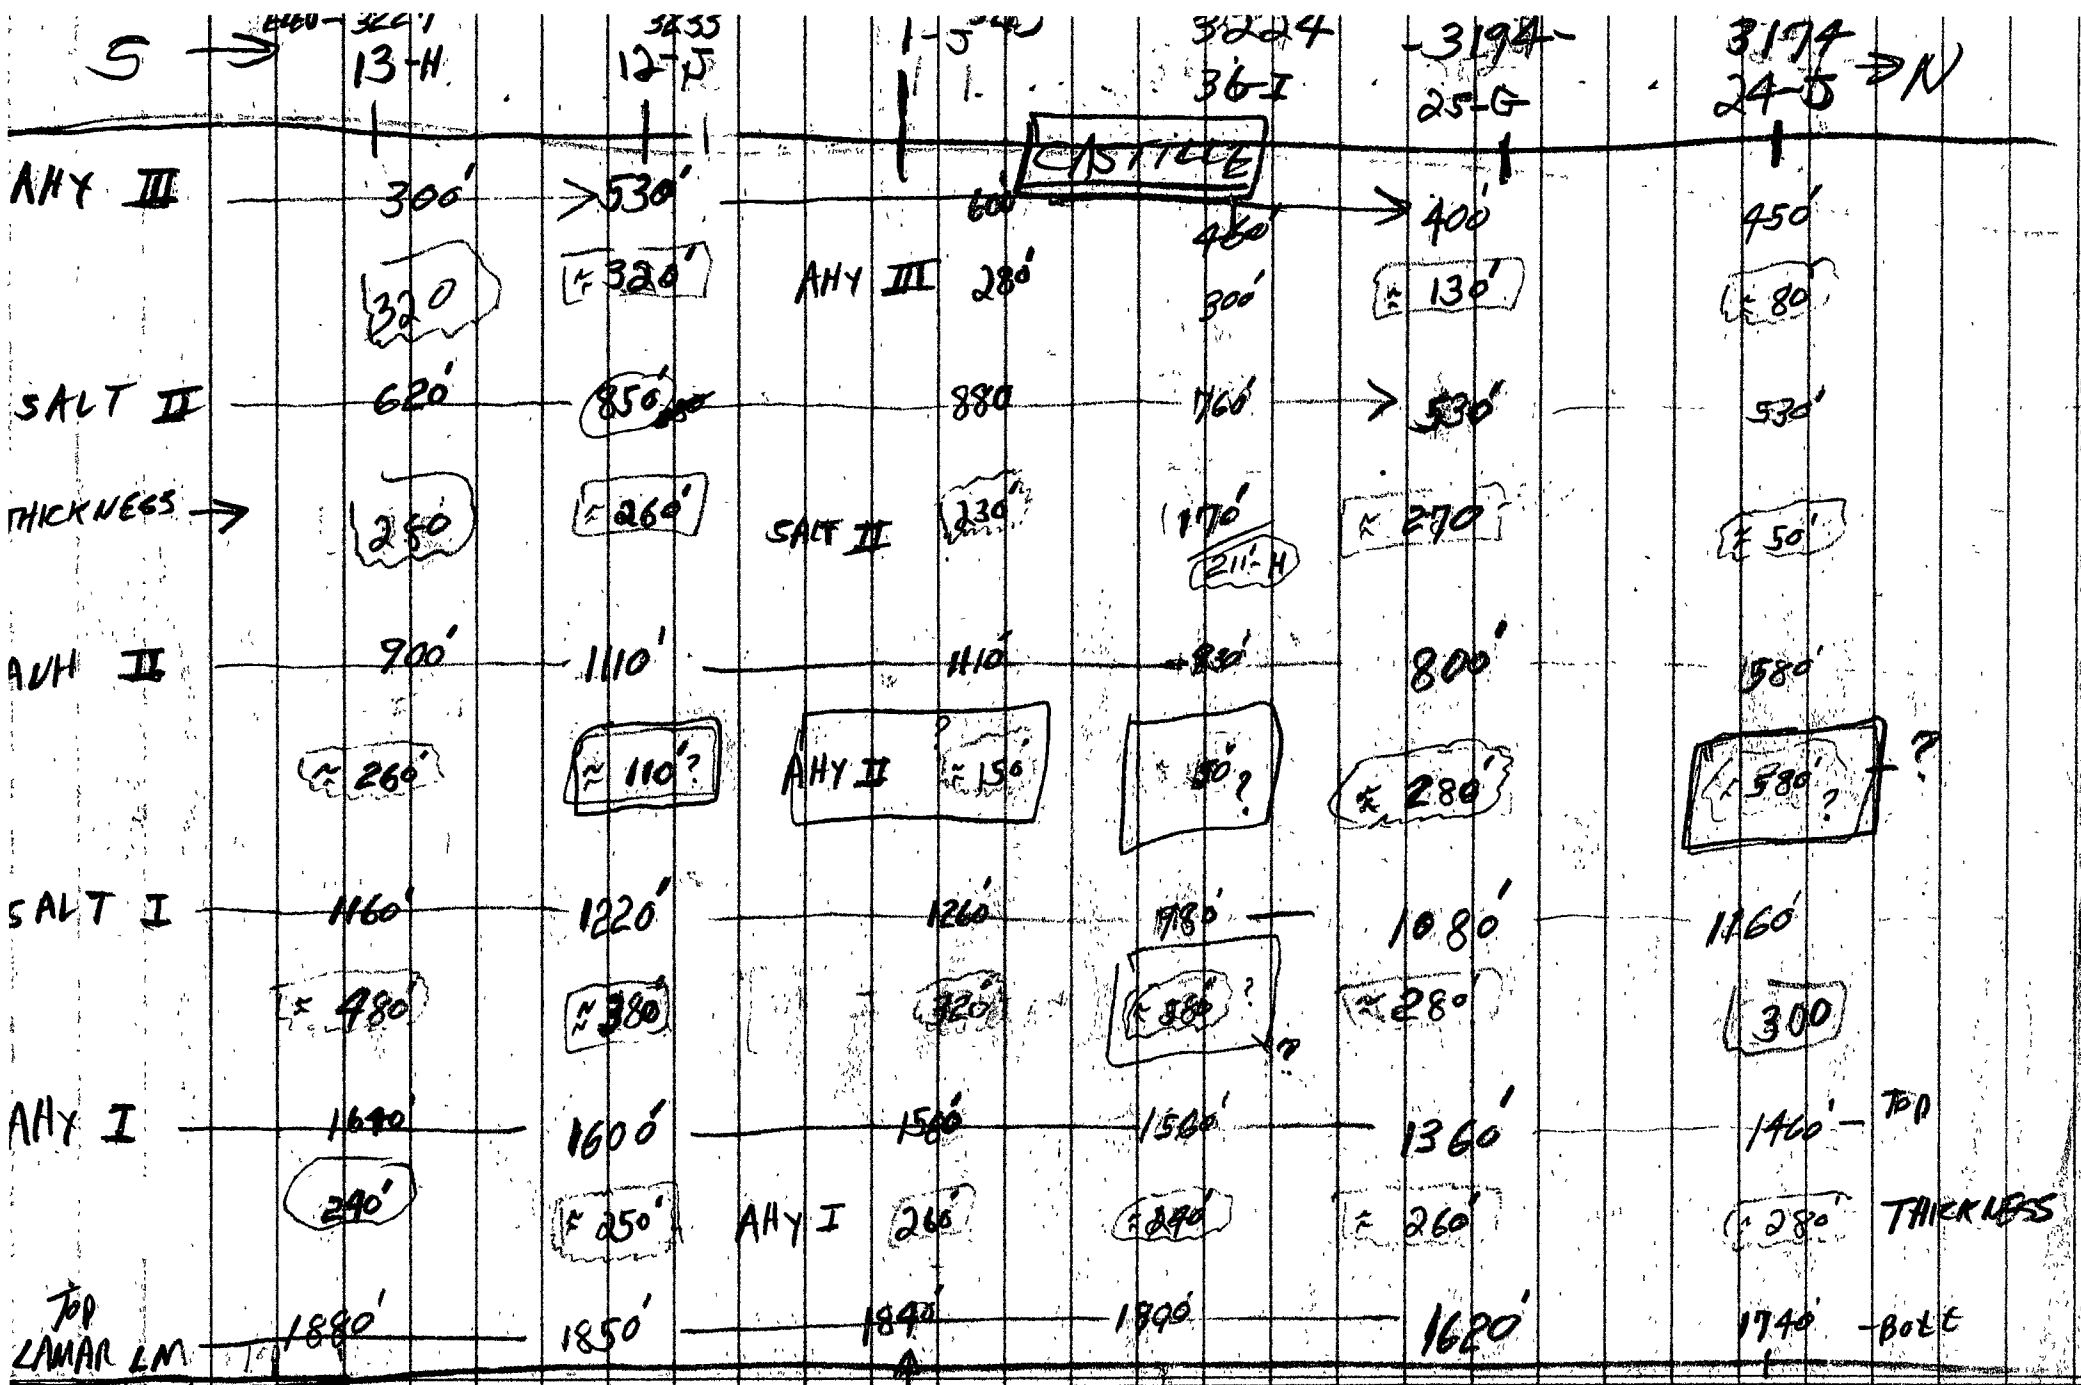 3233 3224 -3194- 3174
S → 13-H 12-J 1-J 36-I 25-G 24-J → N
CASTILLE
AHY III 300' 530' 600' 460' 400' 450'
320 ≈ 320' AHY III 280' 300' ≈ 130' ≈ 80'
SALT II 620' 850' 880 760' 530' 530'
THICKNESS → 280 ≈ 260' SALT II 230' 170' ≈ 270 ≈ 50'
211'-H
ANH II 900' 1110' 1110' 830' 800' 580'
≈ 260' ≈ 110'? AHY II ? ≈ 150' 50'? ≈ 280' ≈ 580'? - ?
SALT I 1160' 1220' 1260' 980' 1080' 1160'
≈ 480' ≈ 380' 320' ≈ 580' ? ? ≈ 280' 300
AHY I 1640' 1600' 1580' 1560' 1360' 1460' - TOP
240' ≈ 250' AHY I 260' ≈ 240' ≈ 260' ≈ 280' THICKNESS
TOP
LAMAR LM 1880' 1850' 1840' 1800' 1620' 1740' - BOTT